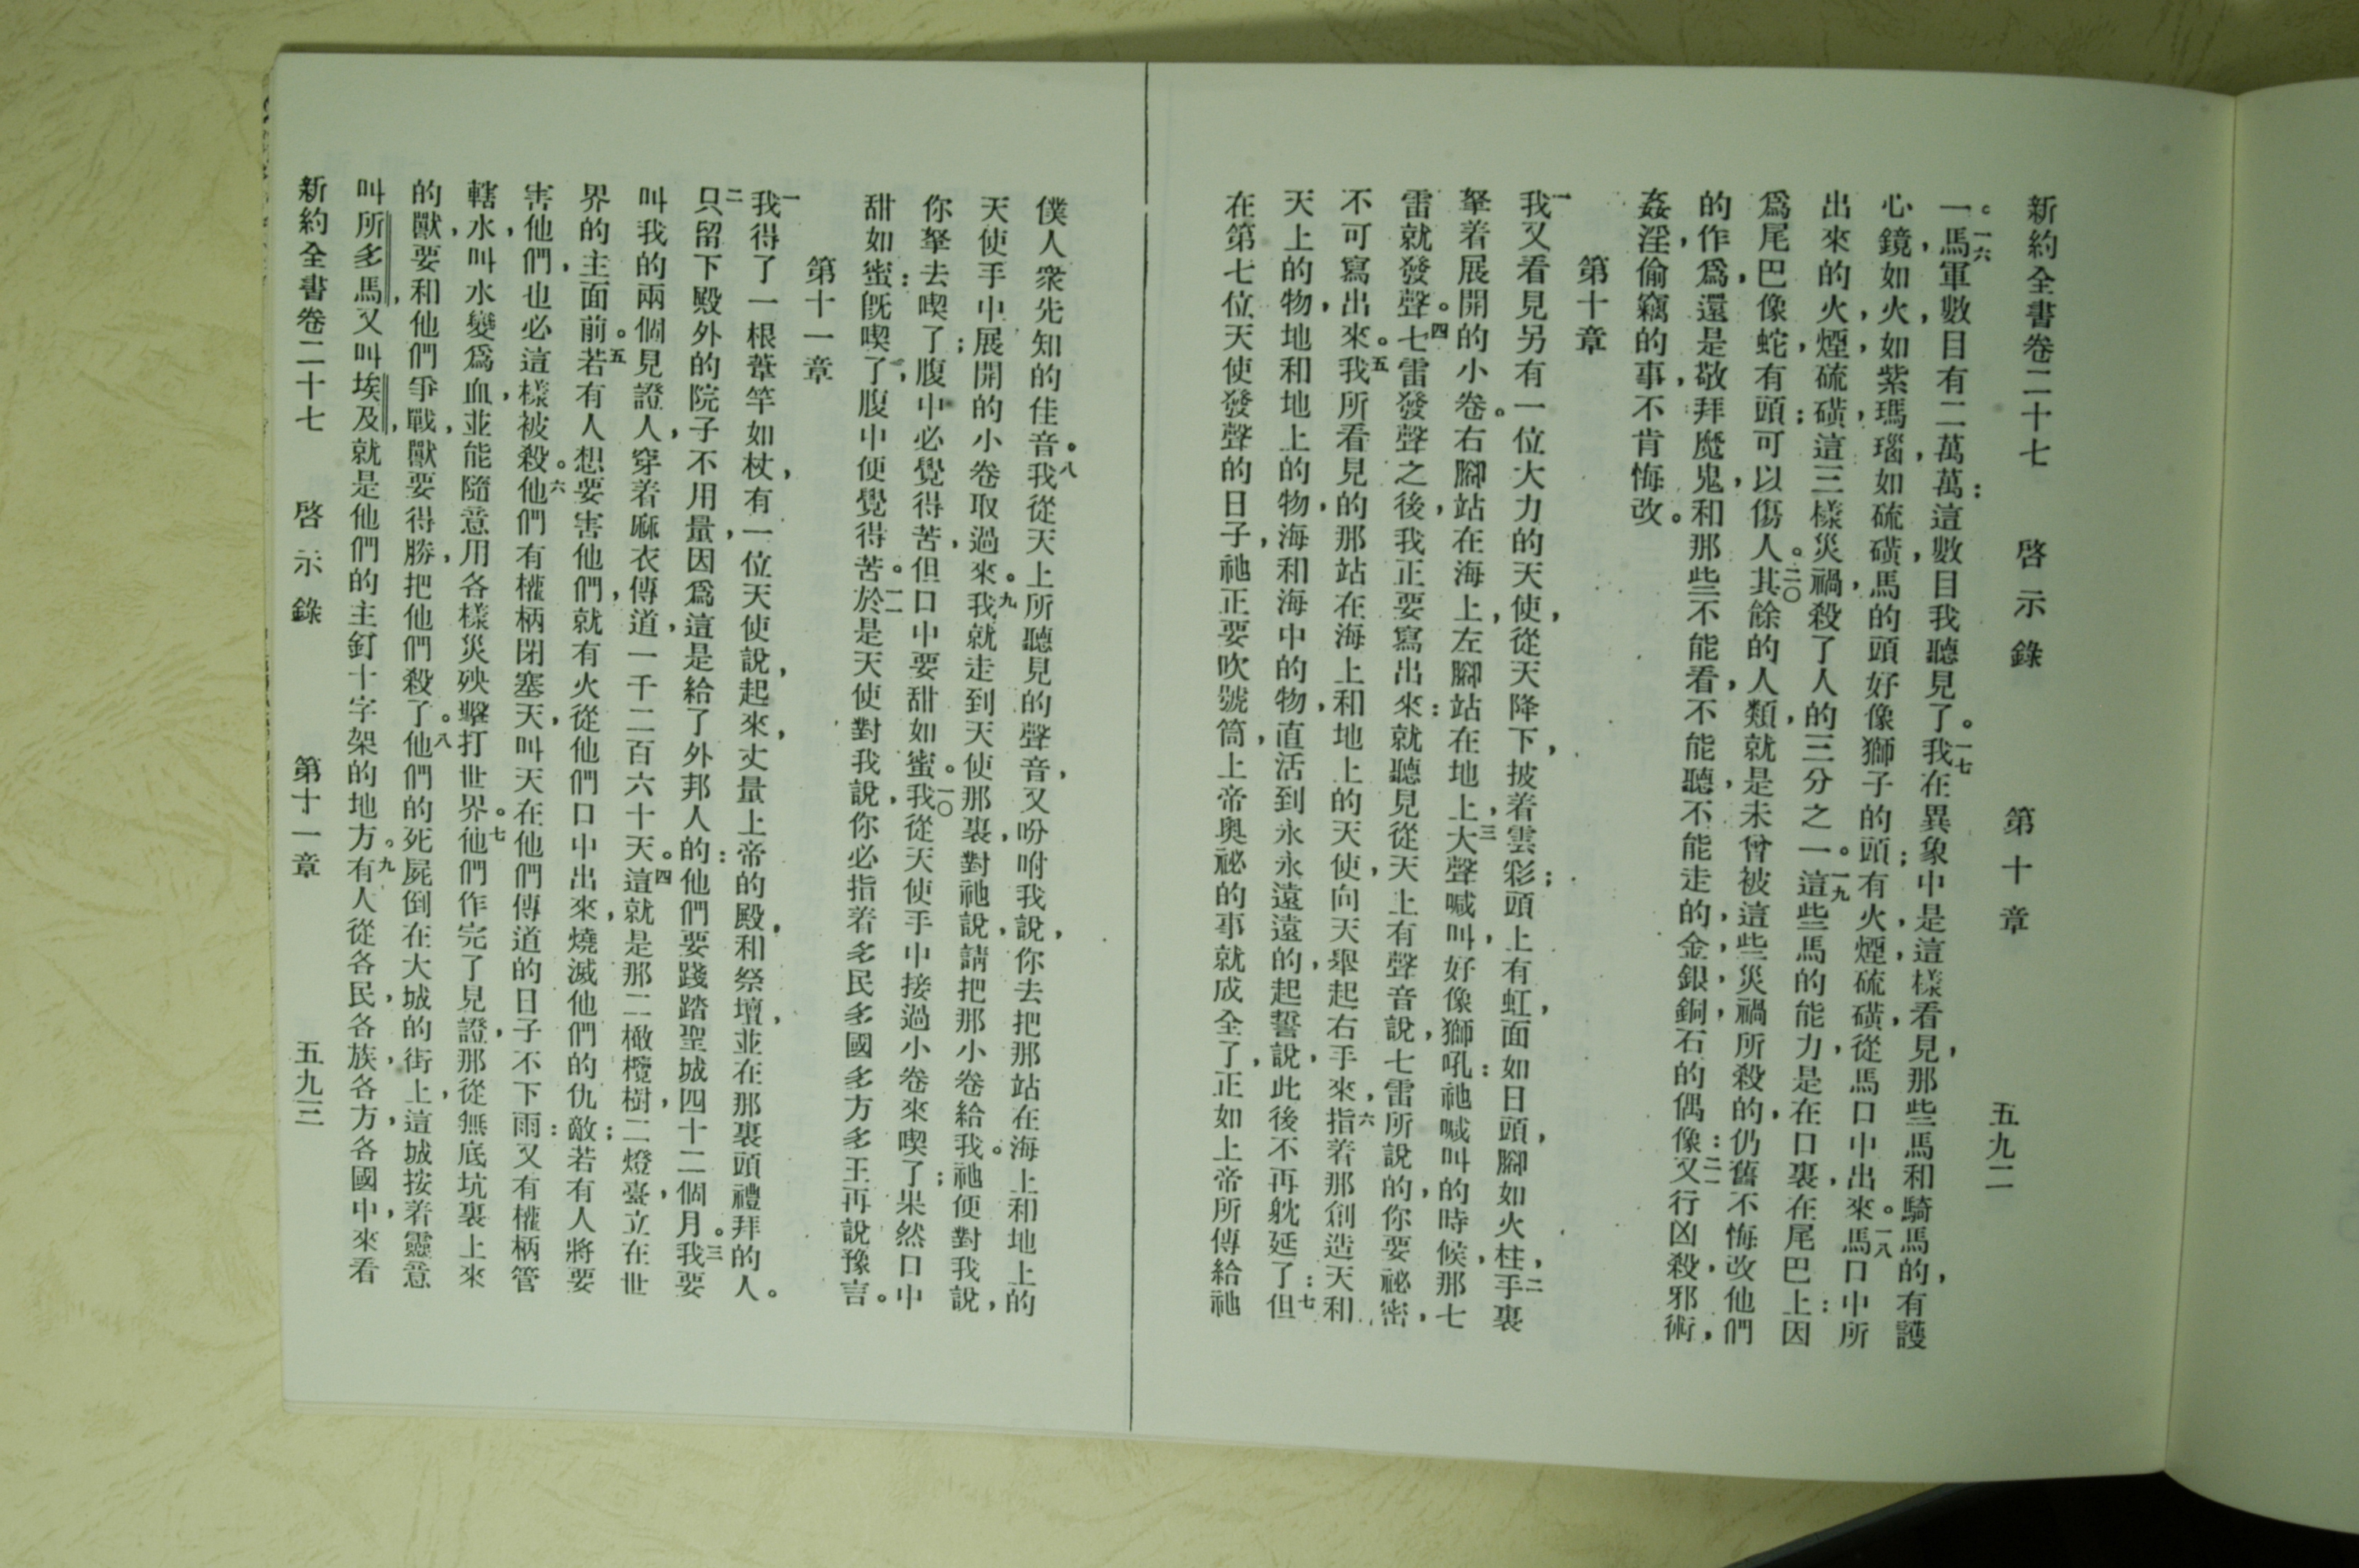 新約全書卷二十七　啓示錄　第十章　五九二
一。一六馬軍數目有二萬萬：這數目我聽見了。一七我在異象中是這樣看見，那些馬和騎馬的，有護
心鏡，如火，如紫瑪瑙，如硫磺，馬的頭好像獅子的頭；有火，煙，硫磺，從馬口中出來。一八馬口中所
出來的火，煙，硫磺，這三樣災禍，殺了人的三分之一。一九這些馬的能力，是在口裏，在尾巴上：因
爲尾巴像蛇，有頭；可以傷人。二〇其餘的人類，就是未曾被這些災禍所殺的，仍舊不悔改他們
的作爲，還是敬拜魔鬼，和那些不能看，不能聽，不能走的，金，銀，銅，石的偶像：二一又行凶殺，邪術，
姦淫，偷竊的事，不肯悔改。
第十章
一我又看見另有一位大力的天使，從天降下，披着雲彩；頭上有虹，面如日頭，腳如火柱，二手裏
拏着展開的小卷。右腳站在海上，左腳站在地上，三大聲喊叫，好像獅吼：祂喊叫的時候，那七
雷就發聲。四七雷發聲之後，我正要寫出來：就聽見從天上有聲音說，七雷所說的，你要祕密，
不可寫出來。五我所看見的那站在海上和地上的天使，向天舉起右手來，六指着那創造天和
天上的物，地和地上的物，海和海中的物，直活到永永遠遠的，起誓說，此後不再躭延了：七但
在第七位天使發聲的日子，祂正要吹號筒，上帝奧祕的事就成全了，正如上帝所傳給祂
僕人衆先知的佳音。八我從天上所聽見的聲音，又吩咐我，說，你去把那站在海上和地上的
天使手中展開的小卷取過來。九我就走到天使那裏，對祂說，請把那小卷給我。祂便對我說，
你拏去喫了；腹中必覺得苦，但口中要甜如蜜。一〇我從天使手中接過小卷來喫了；果然口中
甜如蜜：旣喫了，腹中便覺得苦。一一於是天使對我說，你必指着多民多國多方多王再說豫言。
第十一章
一我得了一根葦竿如杖，有一位天使說，起來，丈量上帝的殿，和祭壇，並在那裏頭禮拜的人。
二只留下殿外的院子不用量，因爲這是給了外邦人的：他們要踐踏聖城，四十二個月。三我要
叫我的兩個見證人，穿着麻衣傳道，一千二百六十天。四這就是那二橄欖樹；二燈臺，立在世
界的主面前。五若有人想要害他們，就有火從他們口中出來，燒滅他們的仇敵；若有人將要
害他們，也必這樣被殺。六他們有權柄閉塞天，叫天在他們傳道的日子不下雨：又有權柄管
轄水，叫水變爲血，並能隨意用各樣災殃擊打世界。七他們作完了見證，那從無底坑裏上來
的獸，要和他們爭戰，獸要得勝，把他們殺了。八他們的死屍倒在大城的街上，這城按着靈意
叫所多馬，又叫埃及，就是他們的主釘十字架的地方。九有人從各民，各族，各方，各國中，來看
新約全書卷二十七　啓示錄　第十一章　五九三